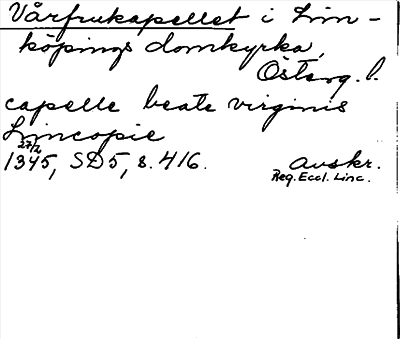 Vårfrukapellet i Lin-
köpings domkyrka,
Österg. l.
capelle beate virginis
Lincopie
27/2
1345, SD5, s. 416. avskr.
Reg. Eccl. Linc.